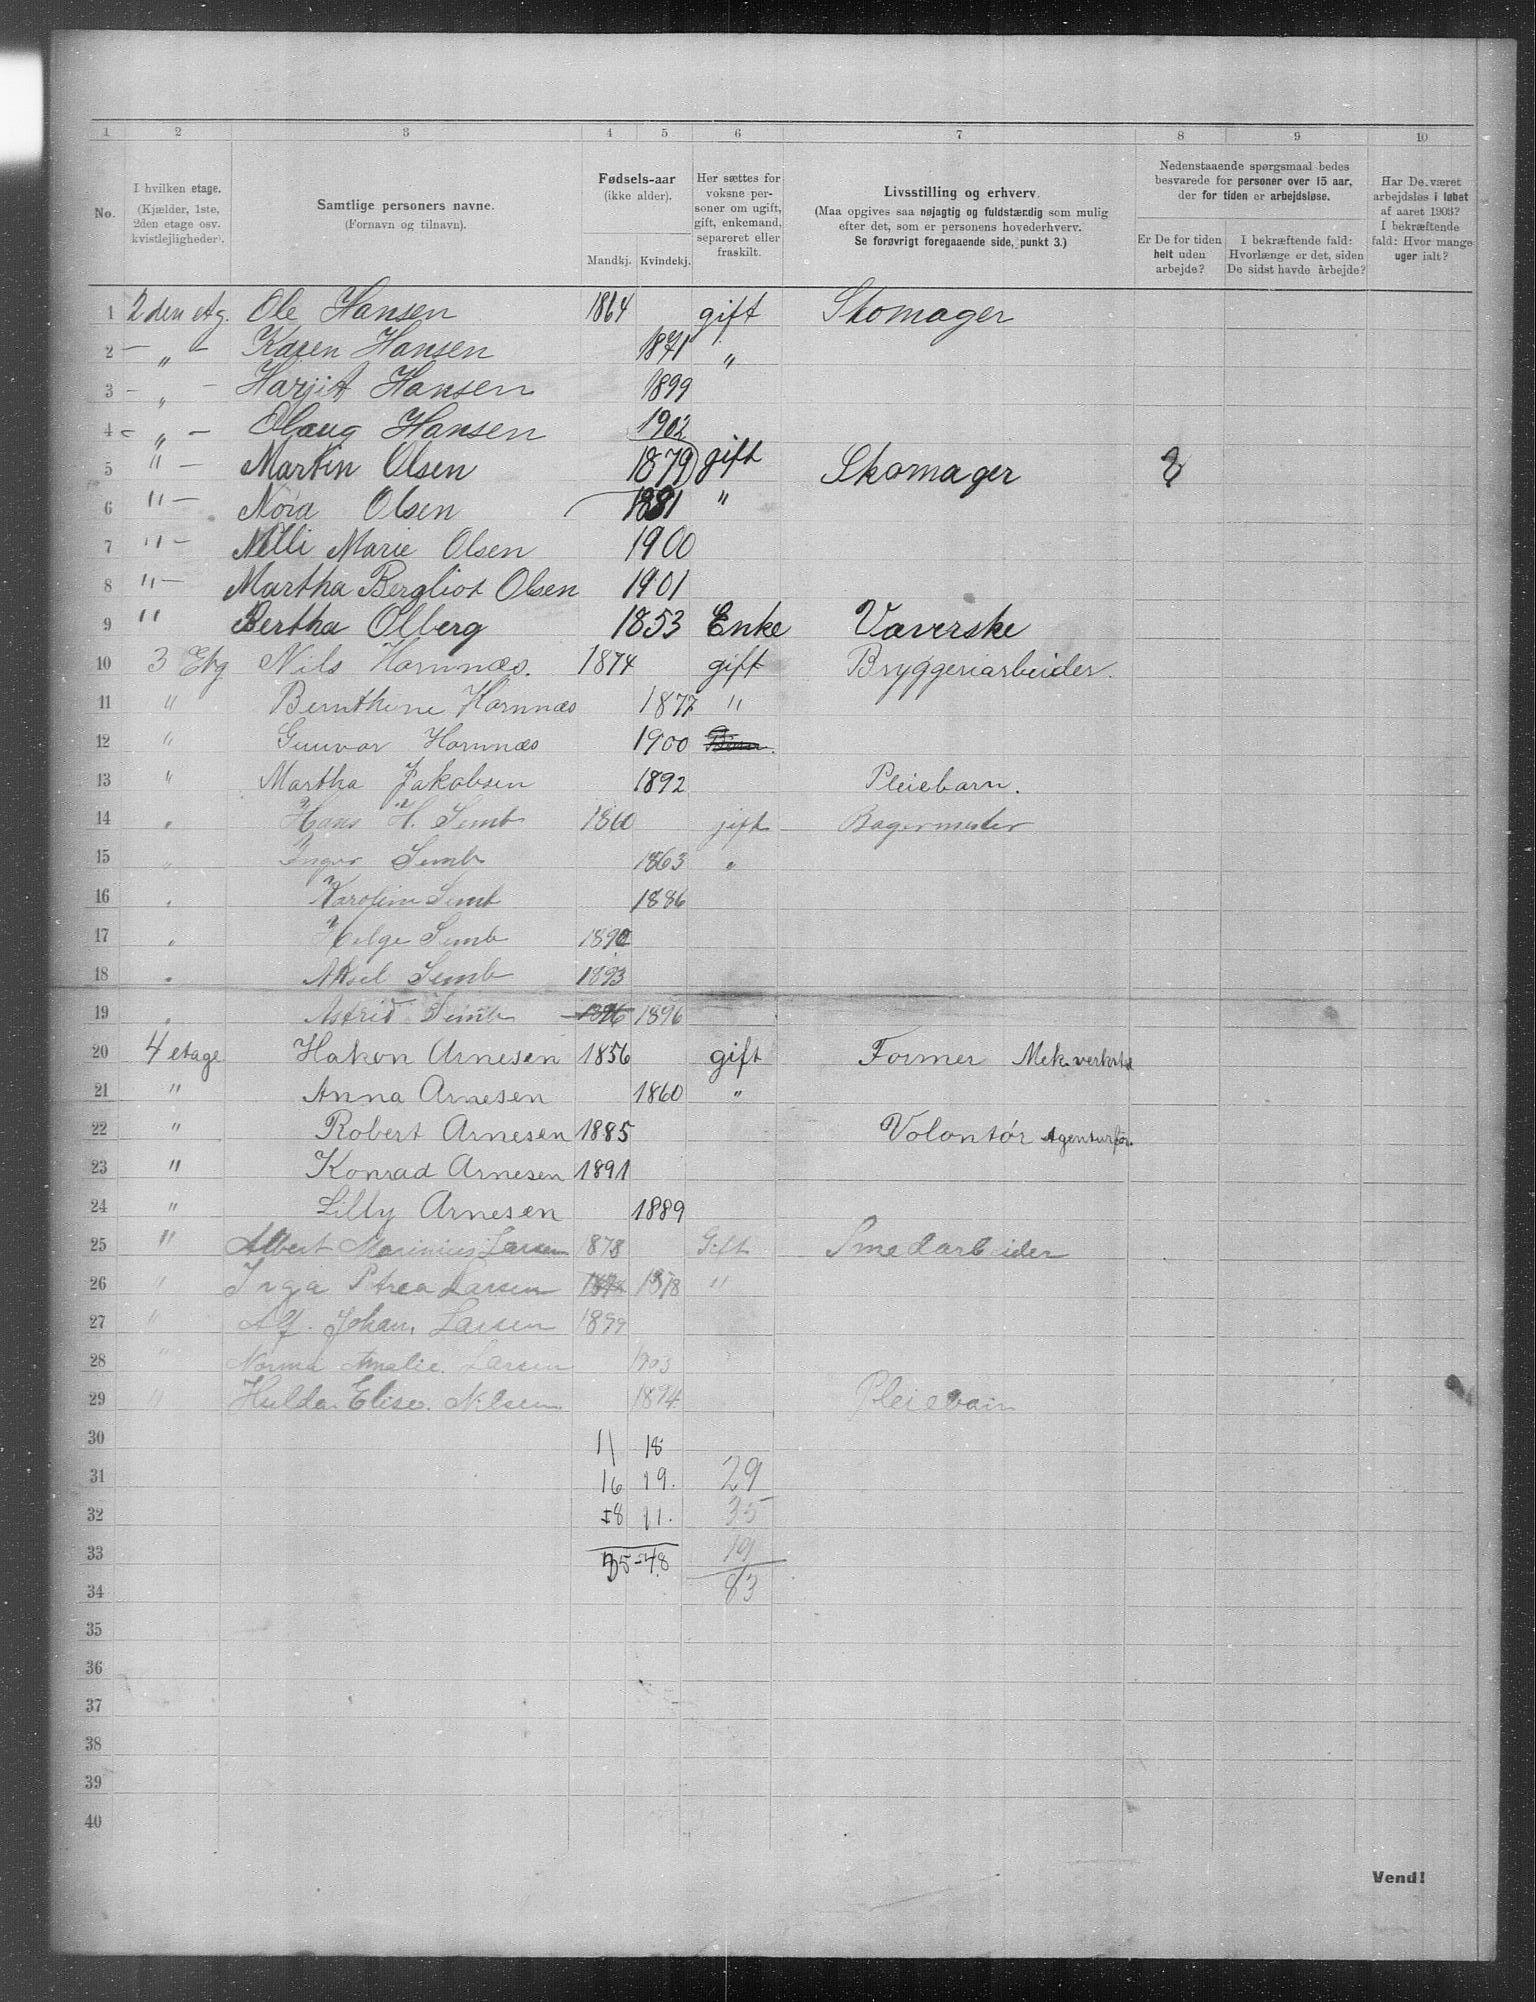 1 2 3 4 5 6 7 8 9 10
No.
I hvilken etage.
(Kjælder, 1ste,
2den etage osv.
kvistlejligheder).
Samtlige personers navne.
(Fornavn og tilnavn).
Fødsels-aar
(ikke alder).
Mandkj. Kvindekj.
Her sættes for
voksne per-
soner om ugift,
gift, enkemand,
separeret eller
fraskilt.
Livsstilling og erhverv.
(Maa opgives saa nøjagtig og fuldstændig som mulig
efter det, som er personens hovederhverv.
Se forøvrigt foregaaende side, punkt 3.)
Nedenstaaende spørgsmaal bedes
besvarede for personer over 15 aar,
der for tiden er arbejdsløse.
Er De for tiden
helt uden
arbejde?
I bekræftende fald:
Hvorlænge er det, siden
De sidst havde arbejde?
Har De været
arbejdsløs i løbet
af aaret 1903?
I bekræftende
fald: Hvor mange
uger ialt?
1 2 den etg. Ole Hansen 1864 gift Skomager
2 — „ — Karen Hansen 1871 „
3 — „ — Harjit Hansen 1899
4 — „ — Olaug Hansen 1902
5 " — Martin Olsen 1879 gift Skomager
6 " — Nora Olsen 1881 "
7 " — Nelli Marie Olsen 1900
8 " — Martha Bergliot Olsen 1901
9 " Bertha Olberg 1853 Enke Væverske
10 3 Etg Nils Hornnæs. 1874 gift Bryggeriarbeider.
11 " Bernthine Hornnæs 1877 "
12 " Gunvor Hornnæs 1900
13 " Martha Jakobsen 1892 Pleiebarn.
14 " Hans H. Semb 1860 gift Bagermester
15 " Inger Semb 1863 "
16 " Karoline Semb 1886
17 " Helge Semb 1890
18 " Aksel Semb 1893
19 " Astrid Semb 1896 1896
20 4 etage Hakon Arnesen 1856 gift Former Mek. verksted
21 " Anna Arnesen 1860 "
22 " Robert Arnesen 1885 Volontør Agenturfor.
23 " Konrad Arnesen 1891
24 " Lilly Arnesen 1889
25 " Albert Marinius Larsen 1878 Gift Smedarbeider
26 " Inga Petrea Larsen 1878 "
27 " Alf. Johan. Larsen 1899
28 " Norma Amalie. Larsen 1903
29 " Hulda Elise. Nilsen 1894. Pleiebarn
30 11 18
31 16 19. 29
32 +8 11. 35
33 35-48 19
34 83
35
36
37
38
39
40
Vend!